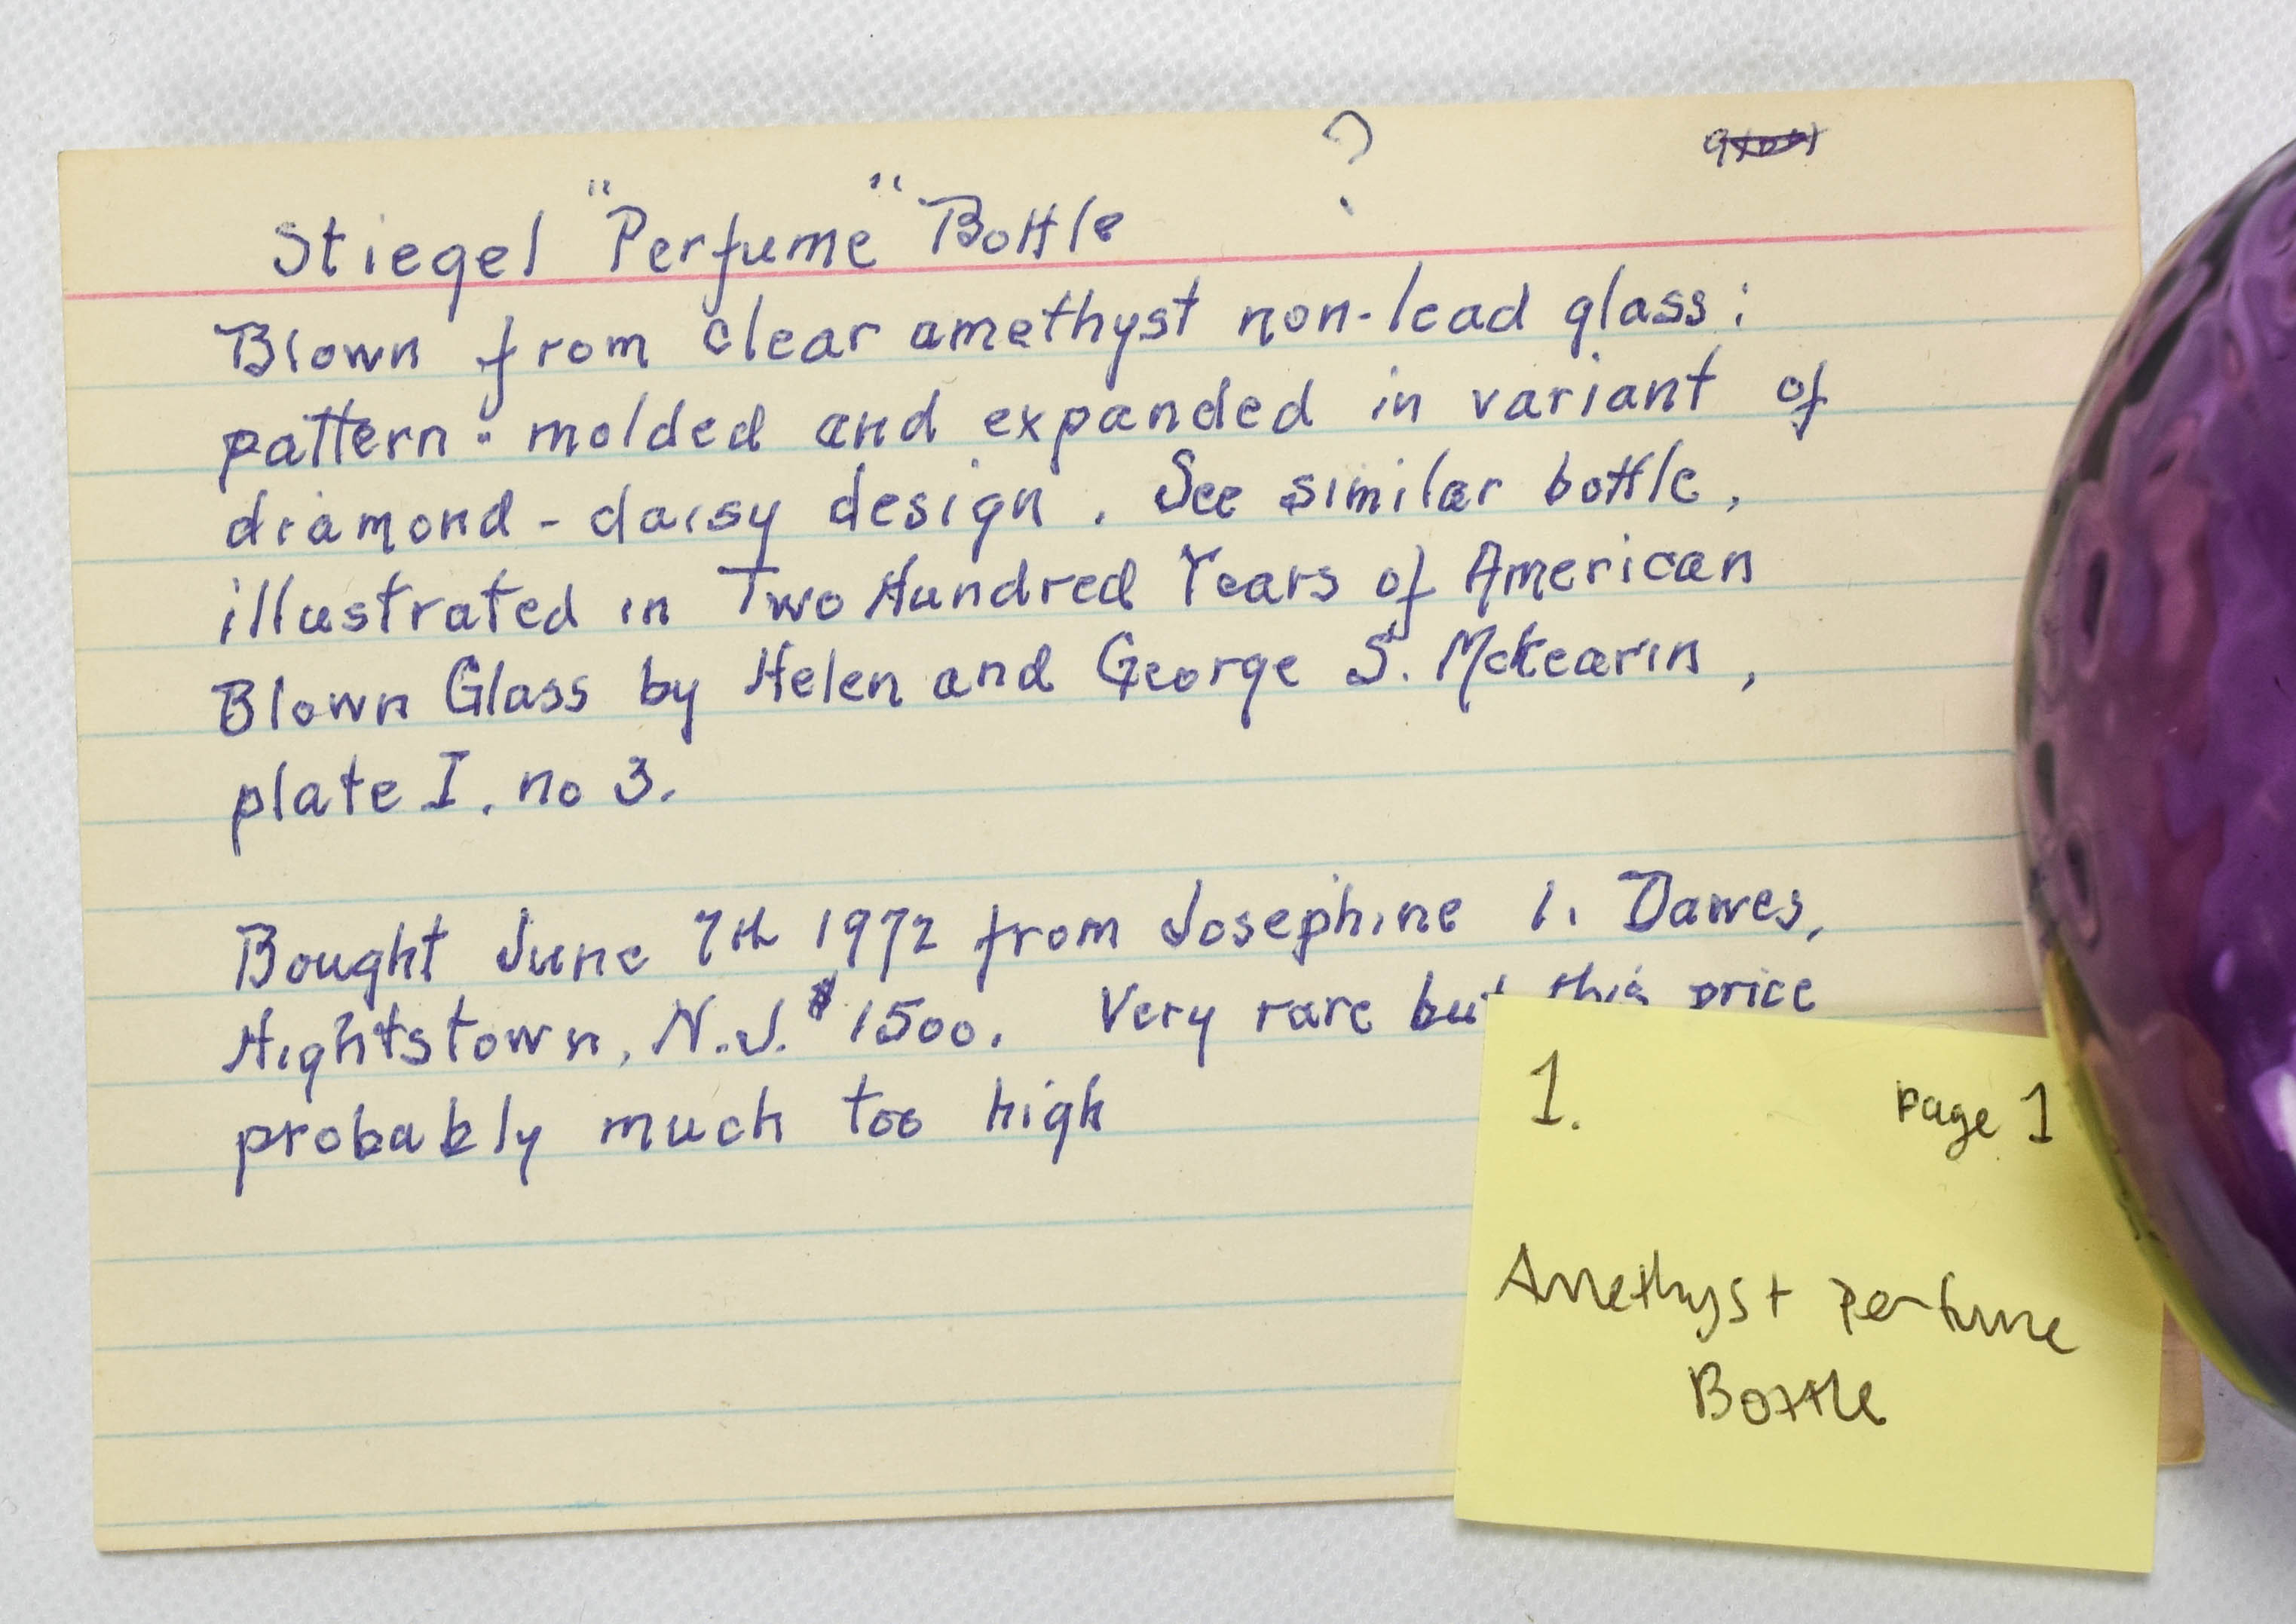 ?
Stiegel "Perfume" Bottle
Blown from clear amethyst non-lead glass;
pattern-molded and expanded in variant of
diamond-daisy design. See similar bottle,
illustrated in Two Hundred Years of American
Blown Glass by Helen and George S. McKearin,
plate I, no 3.
Bought June 7th 1972 from Josephine I. Dawes,
Hightstown, N.J. $1500. Very rare but this price
probably much too high
1. Page 1
Amethyst Perfume
Bottle